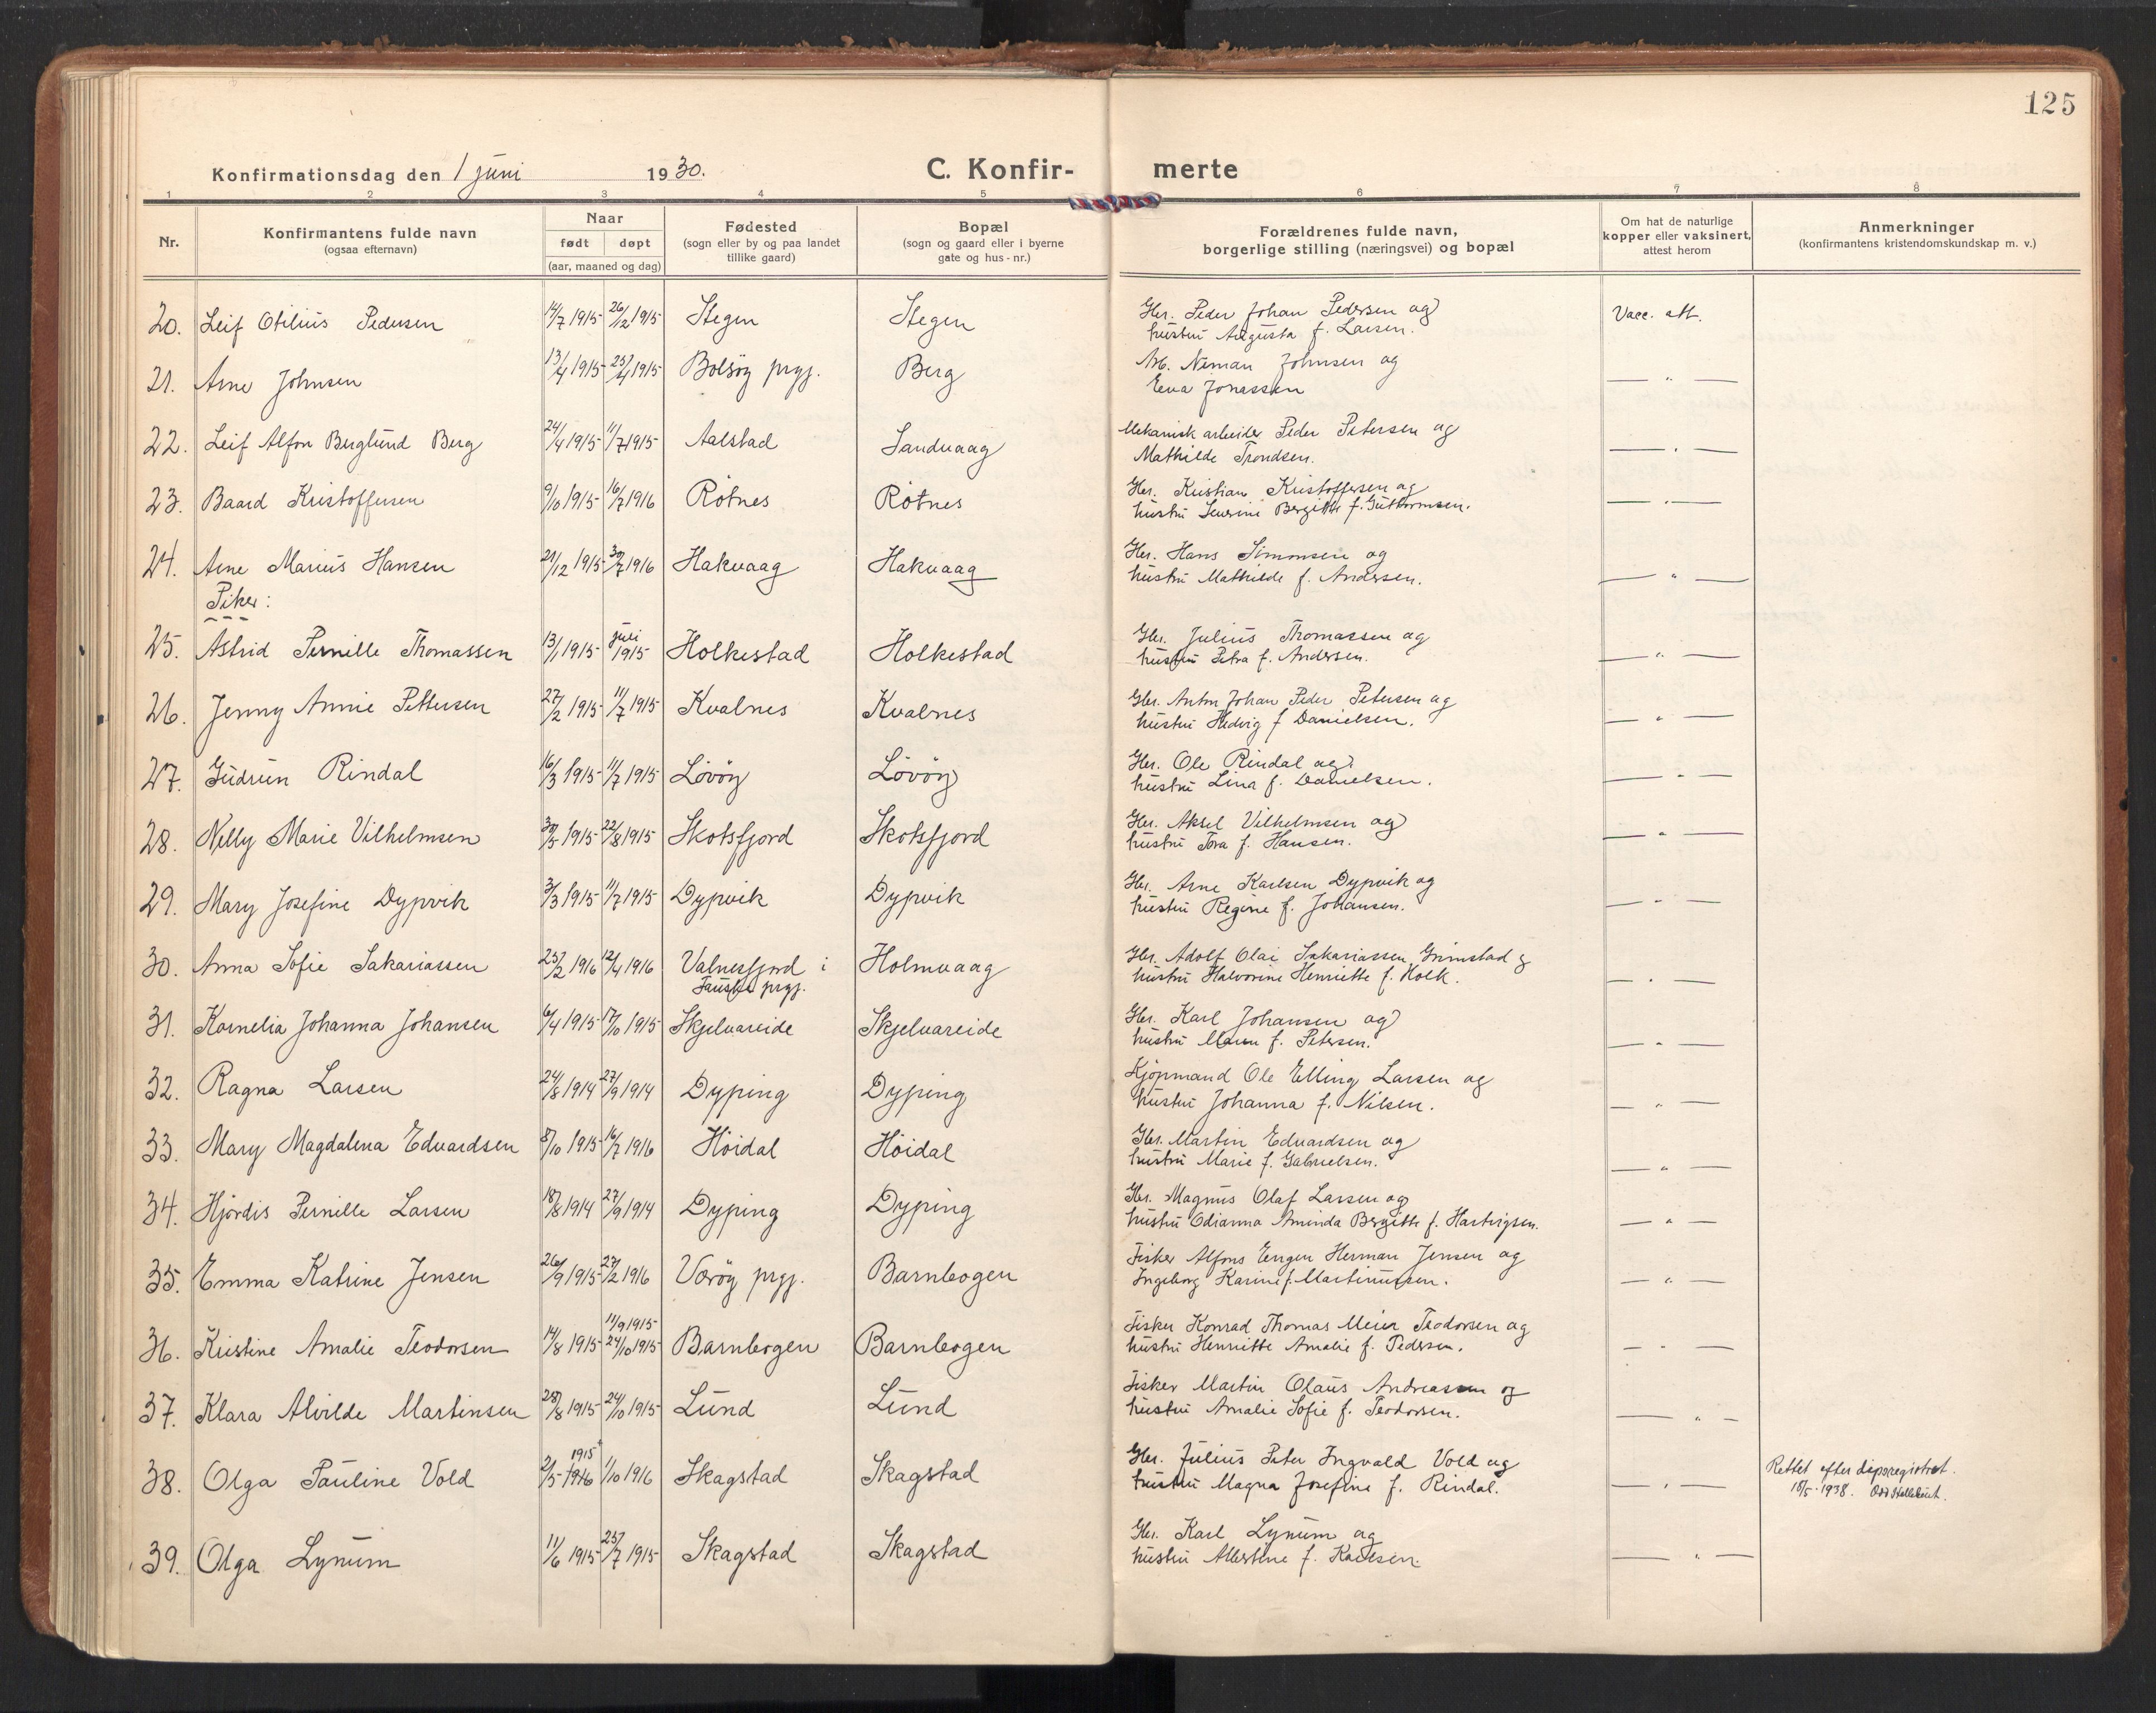 125
Konfirmationsdag den 1 juni 1930. C. Konfir- merte
1 2 3 4 5 6 7 8
Nr. Konfirmantens fulde navn (ogsaa efternavn) Naar født døpt (aar, maaned og dag) Fødested (sogn eller by og paa landet tillike gaard) Bopæl (sogn og gaard eller i byerne gate og hus-nr.) Forældrenes fulde navn, borgerlige stilling (næringsvei) og bopæl Om hat de naturlige kopper eller vaksinert, attest herom Anmerkninger (konfirmantens kristendomskundskap m. v.)
20. Leif Otilius Pedersen 14/7 1915 26/12 1915 Stegen Stegen Gbr. Peder Johan Pedersen og
hustru Augusta f. Larsen. Vacc. att.
21. Arne Johnsen 13/4 1915 25/4 1915 Bolsöy prgj. Berg Arb. Niman Johnsen og
Eva Jonassen — " —
22. Leif Alfon Berglund Berg 24/4 1915 11/7 1915 Aalstad Sandvaag Mekanisk arbeider Peder Petersen og
Mathilde Trondsen. — " —
23. Baard Kristoffersen 9/10 1915 16/7 1916 Rötnes Rötnes Gbr. Kristian Kristoffersen og
hustru Severine Bergitte f. Guttormsen. — " —
24. Arne Marius Hansen 21/12 1915 30/7 1916 Hakvaag Hakvaag Gbr. Hans Simonsen og
hustru Mathilde f. Andersen. — " —
Piker:
25. Astrid Pernille Thomassen 13/1 1915 juli 1915 Holkestad Holkestad Gbr. Julius Thomassen og
hustru Petra f. Andersen. — " —
26. Jenny Annie Pettersen 27/2 1915 11/7 1915 Kvalnes Kvalnes Gbr. Anton Johan Peder Petersen og
hustru Hedvig f Danielsen. — " —
27. Gudrun Rindal 16/3 1915 11/7 1915 Lövöy Lövöy Gbr. Ole Rindal og
hustru Lina f. Danielsen. — " —
28. Nelly Marie Vilhelmsen 30/5 1915 22/8 1915 Skotsfjord Skotsfjord Gbr. Aksel Vilhelmsen og
hustru Tora f. Hansen. — " —
29. Mary Josefine Dypvik 3/3 1915 11/7 1915 Dypvik Dypvik Gbr. Arne Karlsen Dypvik og
hustru Regine f. Johansen. — " —
30. Anna Sofie Sakariassen 25/2 1916 12/4 1916 Valnesfjord i
Fauske prgj. Holmvaag Gbr. Adolf Olai Sakariassen Grimstad &
hustru Halvorine Henriette f. Holk. — " —
31. Kornelia Johanna Johansen 6/4 1915 17/10 1915 Skjelvareide Skjelvareide Gbr. Karl Johansen og
hustru Maren f. Petersen. — " —
32. Ragna Larsen 24/8 1914 27/9 1914 Dyping Dyping Kjöpmand Ole Elling Larsen og
hustru Johanna f. Nilsen. — " —
33. Mary Magdalena Edvardsen 8/10 1915 16/7 1916 Höidal Höidal Gbr. Martin Edvardsen og
hustru Marie f. Gabrielsen. — " —
34. Hjördis Pernille Larsen 18/8 1914 27/9 1914 Dyping Dyping Gbr. Magnus Olaf Larsen og
hustru Odianna Aminda Bergitte f. Hartvigsen. — " —
35. Emma Katrine Jensen 26/9 1915 27/2 1916 Væröy prgj. Barnbogen Fisker Alfons Eugen Herman Jensen og
Ingeborg Karine f. Martinussen. — " —
36. Kristine Amalie Teodorsen 14/8 1915 11/9 1915 24/10 1915 Barnbogen Barnbogen Fisker Konrad Thomas Meier Teodorsen og
hustru Henriette Amalie f. Pedersen. — " —
37. Klara Alvilde Martinsen 28/8 1915 24/10 1915 Lund Lund Fisker Martin Olaus Andreassen og
hustru Amalie Sofie f. Teodorsen. — " —
38. Olga Pauline Vold 2/5 1916 1915 1/10 1916 Skagstad Skagstad Gbr. Julius Peter Ingvald Vold og
hustru Magna Josefine f. Rindal. — " — Rettet efter dåpsregistret.
18/5 1938.
39. Olga Lynum 11/6 1915 25/7 1915 Skagstad Skagstad Gbr. Karl Lynum og
hustru Albertine f. Karlsen. — " —